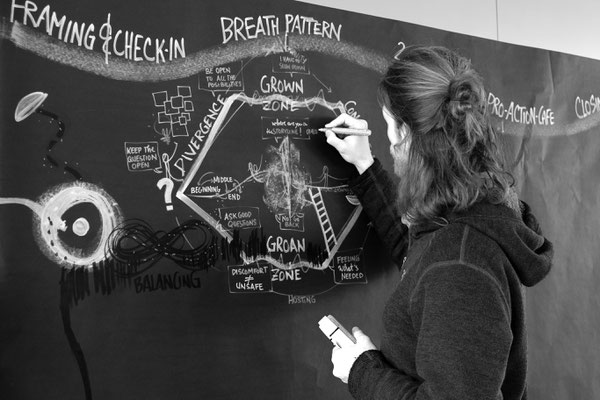 FRAMING & CHECK-IN
BREATH PATTERN
PRO-ACTION-CAFE
CLOSIN
BE OPEN
TO ALL THE
POSSIBILITIES
I HAVE TO
GROWN
ZONE
DIVERGENCE
KEEP THE
QUESTION
OPEN
?
where are you in
MIDDLE
BEGINNING
END
ASK GOOD
QUESTIONS
NO
BACK
GROAN
ZONE
DISCOMFORT
≠
UNSAFE
FEELING
WHAT'S
NEEDED
BALANCING
HOSTING